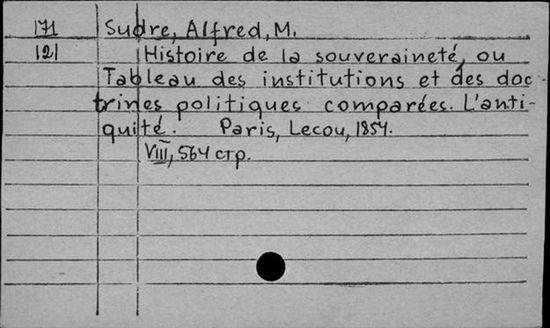 171 Sudre, Alfred, M.
121 Histoire de la souveraineté, ou
Tableau des institutions et des doc-
trines politiques comparées. L'anti-
quité. Paris, Lecou, 1854.
VIII, 564 стр.